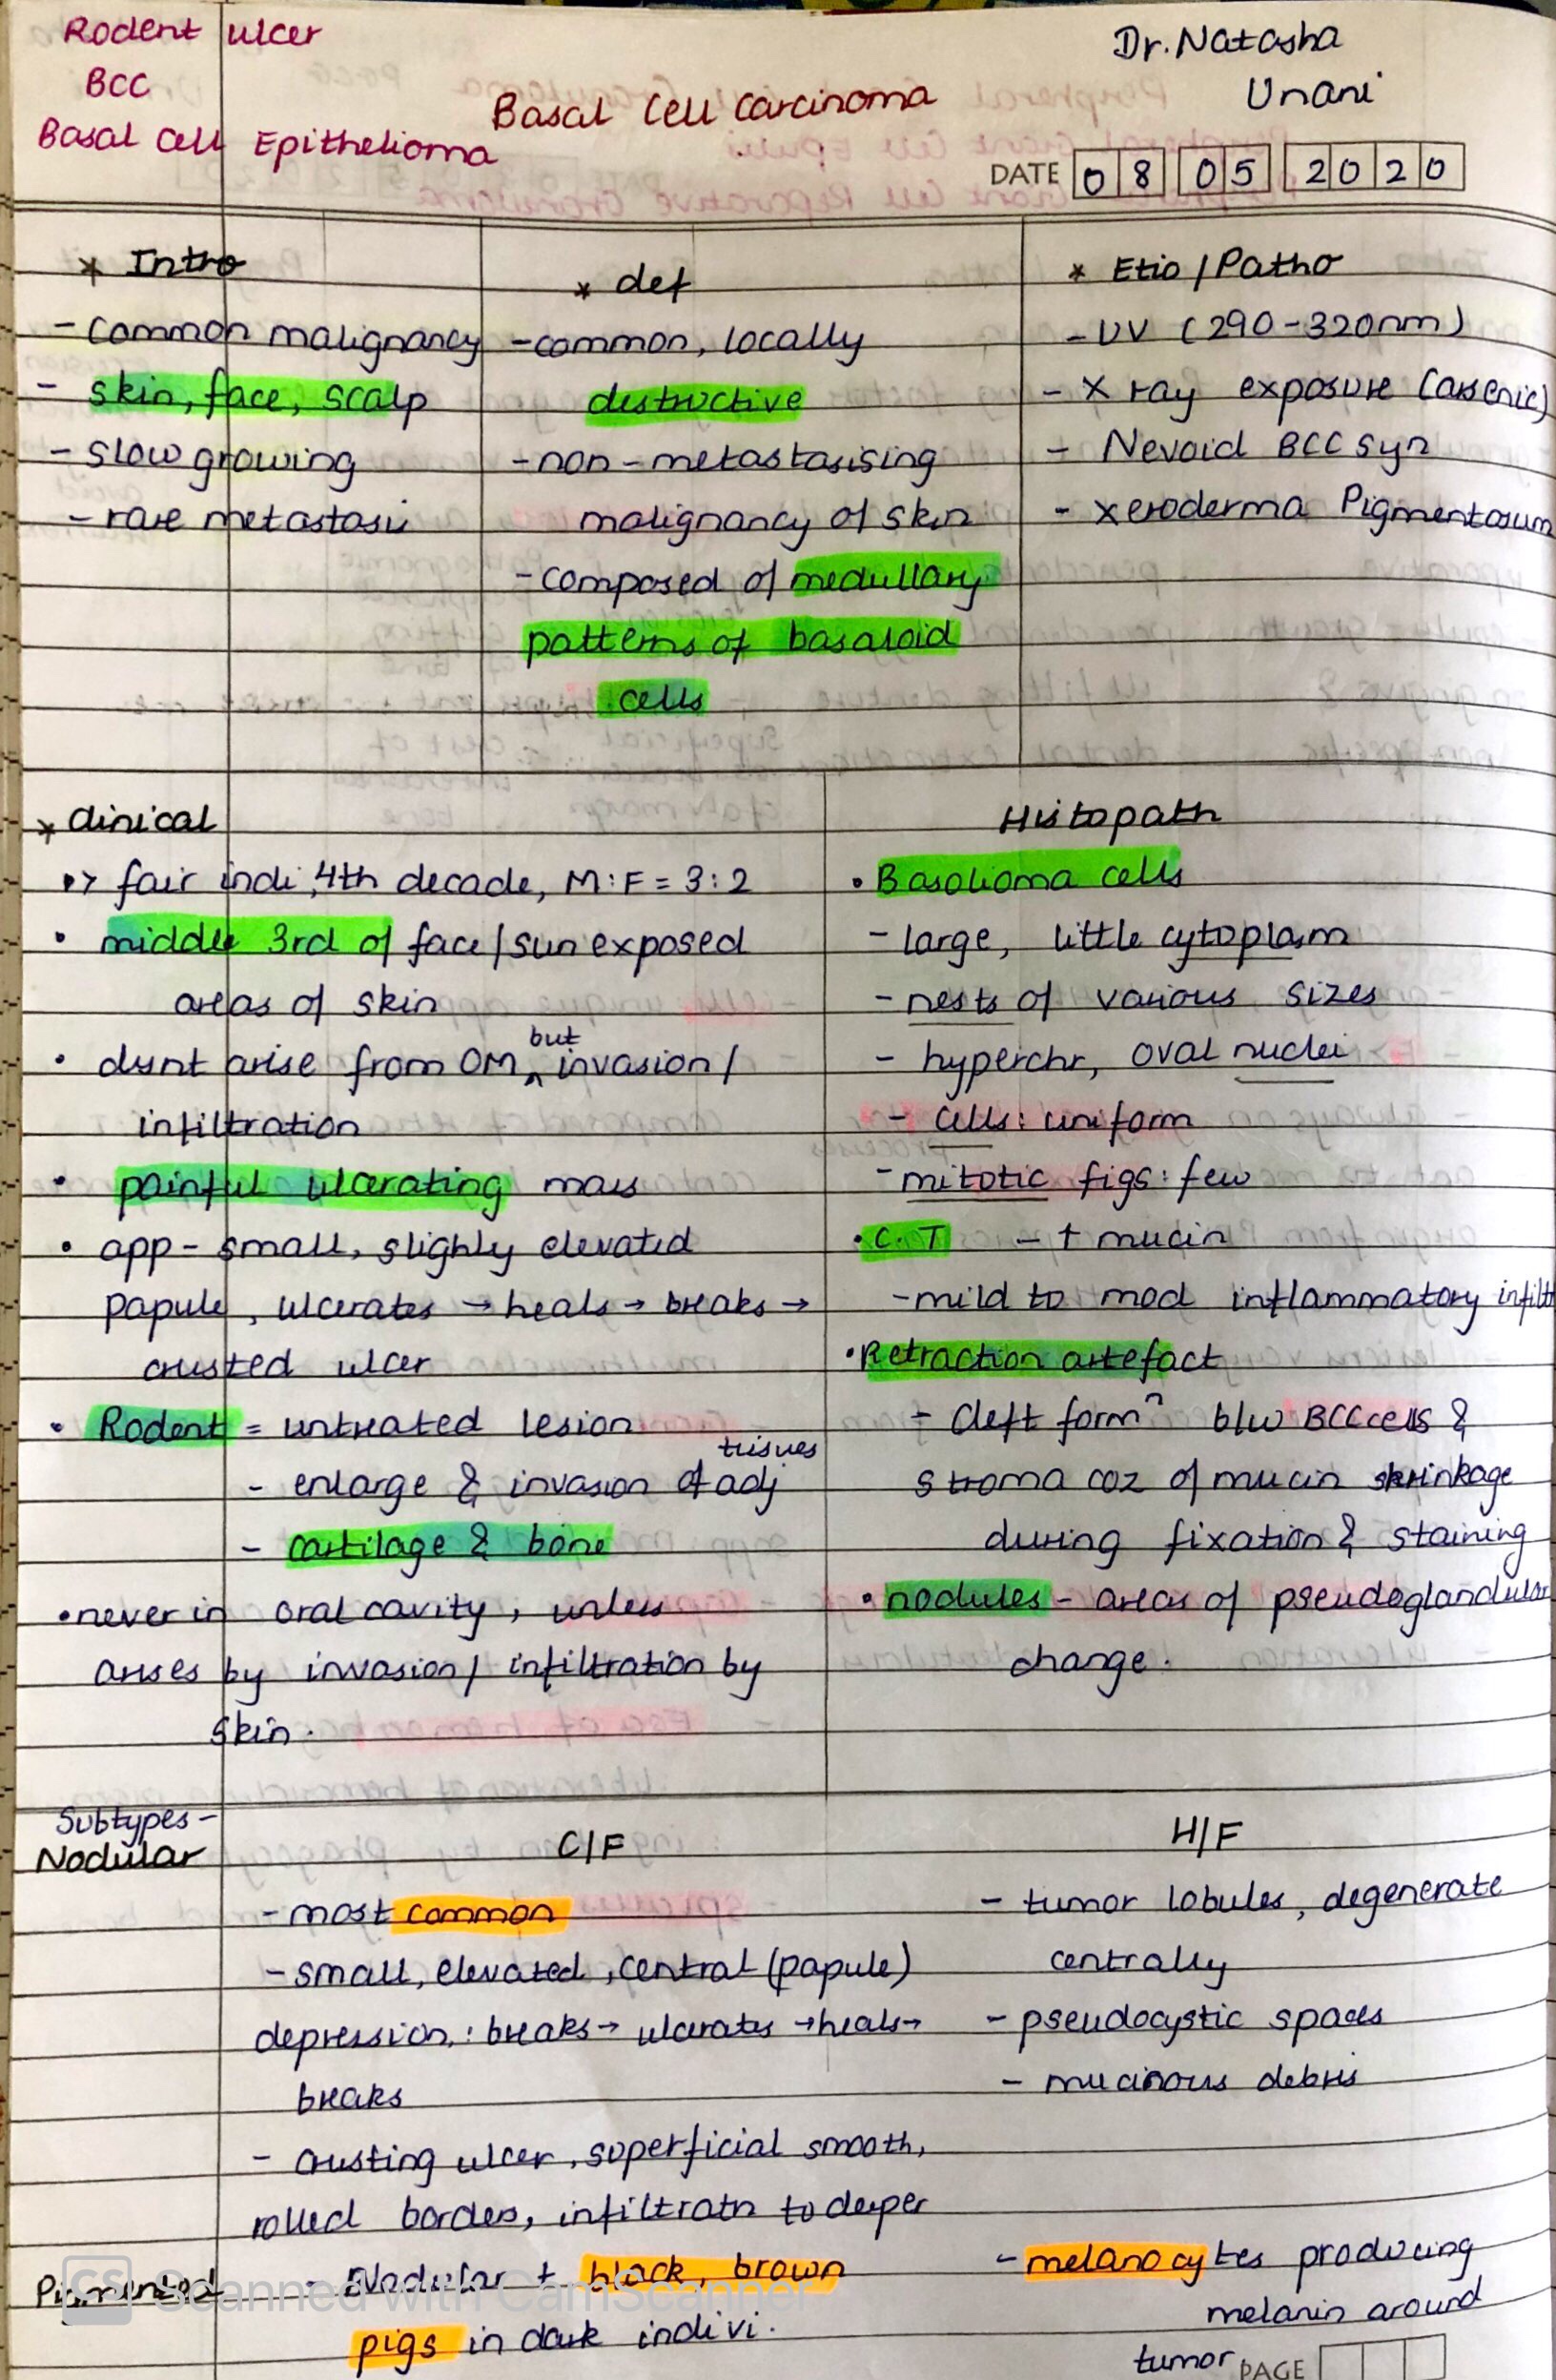 Rodent ulcer
BCC
Basal Cell Epithelioma
Basal Cell Carcinoma
Dr. Natasha
Unani
DATE 08 05 2020
* Intro
- common malignancy
- skin, face, scalp
- slow growing
- rare metastasi
* def
- common, locally
destructive
- non-metastasising
malignancy of skin
- composed of medullary
patterns of basaloid
cells
* Etio / Patho
- UV (290-320nm)
- X ray exposure (arsenic)
- Nevoid BCC syn
- Xeroderma Pigmentosum
* clinical
•> fair indi, 4th decade, M:F = 3:2
• middle 3rd of face / sun exposed
areas of skin
• dsnt arise from OM, but invasion /
infiltration
• painful ulcerating mass
• app - small, slighly elevated
papule, ulcerates → heals → breaks →
crusted ulcer
• Rodent = untreated lesion
- enlarge & invasion of adj tissues
- cartilage & bone
• never in oral cavity, unless
arises by invasion / infiltration by
skin.
Histopath
• Basolioma cells
- large, little cytoplasm
- nests of various sizes
- hyperchr, oval nuclei
- cells: uniform
- mitotic figs: few
• C.T - ↑ mucin
- mild to mod inflammatory infilt
• Retraction artefact
- cleft formⁿ b/w BCC cells &
stroma coz of mucin shrinkage
during fixation & staining
• nodules - areas of pseudoglandular
change.
Subtypes -
Nodular
C/F
- most common
- small, elevated, central (papule)
depression,: breaks → ulcerates → heals →
breaks
- crusting ulcer, superficial smooth,
rolled borders, infiltratn to deeper
H/F
- tumor lobules, degenerate
centrally
- pseudocystic spaces
- mucinous debris
Pigmented
- Nodular + black, brown
pigs in dark indivi.
- melanocytes producing
melanin around
tumor
CS Scanned with CamScanner
PAGE